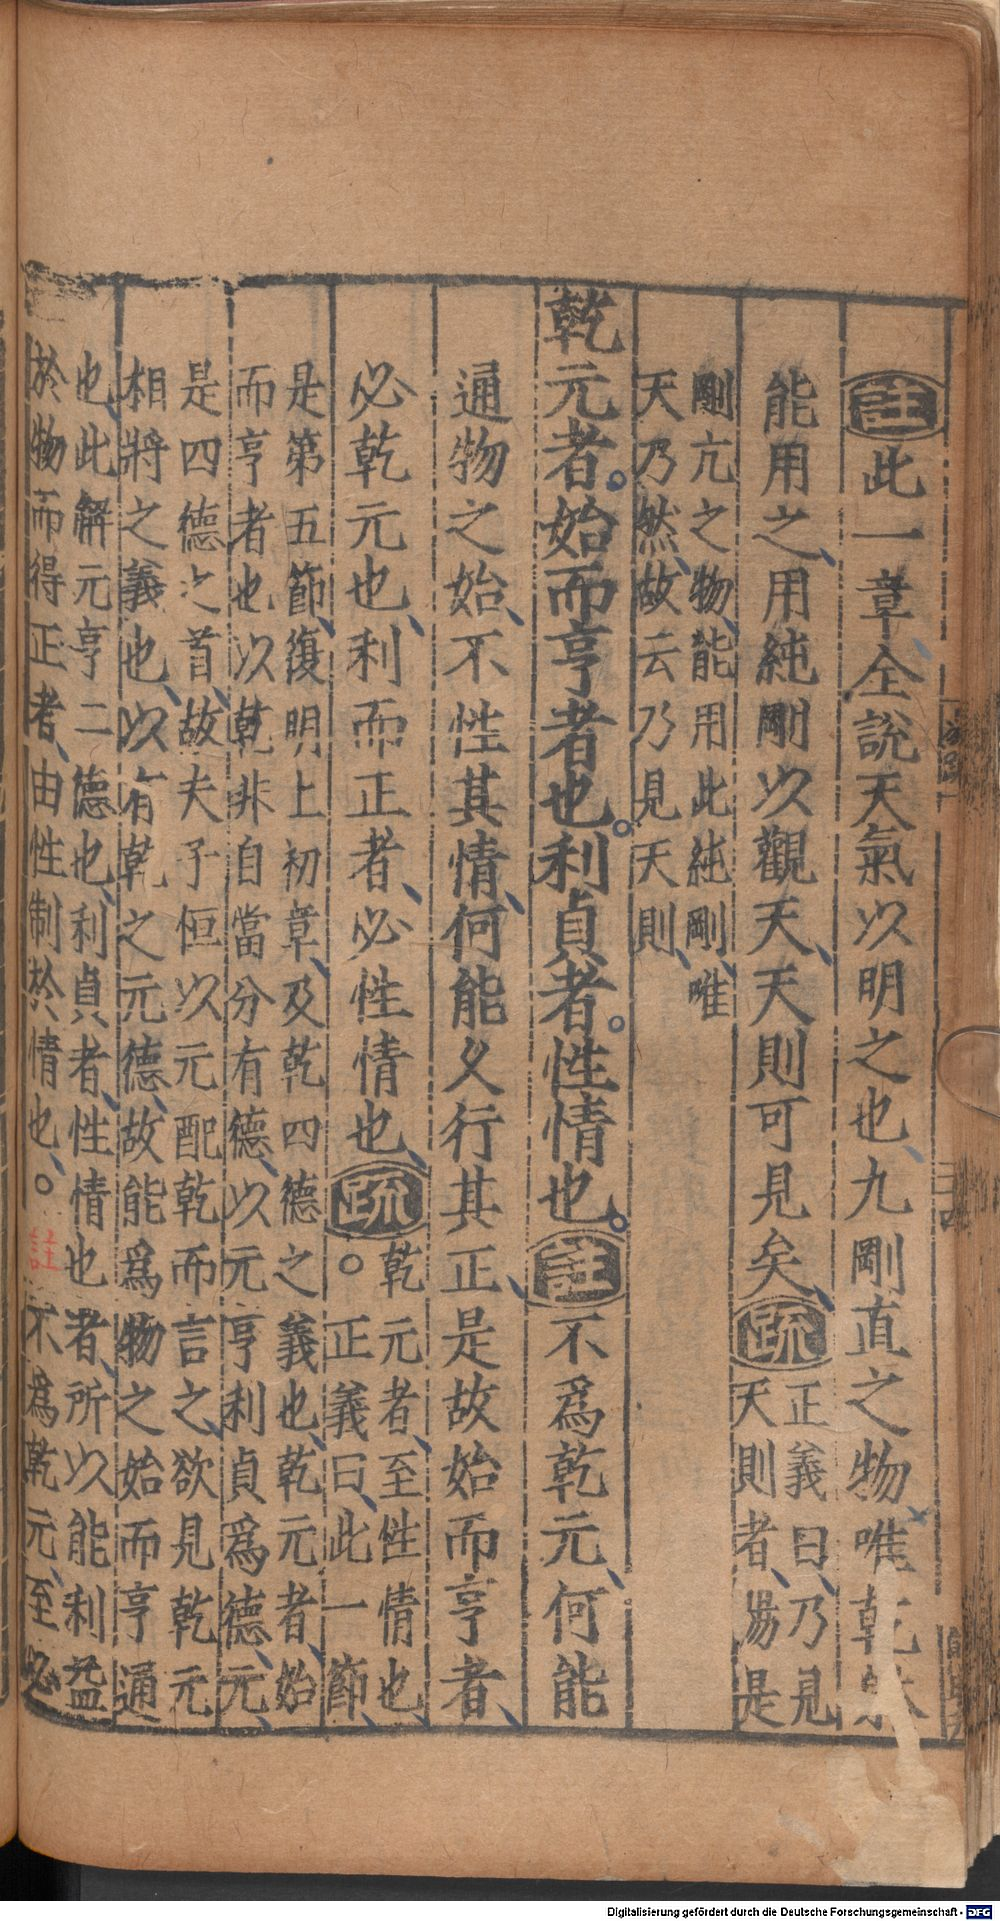 註此一章全說天氣以明之也九剛直之物唯乾
能用之用純剛以觀天天則可見矣疏
正義曰乃見
天則者陽是
剛亢之物能用此純剛唯
天乃然故云乃見天則
乾元者始而亨者也利貞者性情也註不爲乾元何能
通物之始不性其情何能乆行其正是故始而亨者
必乾元也利而正者必性情也疏
乾元者至性情也
○正義曰此一節
是第五節復明上初章及乾四德之義也乾元者始
而亨者也以乾非自當分有德以元亨利貞爲德元
是四德之首故夫子恒以元配乾而言之欲見乾元
相將之義也以有乾之元德故能爲物之始而亨通
也此解元亨二德也利貞者性情也者所以能利益
於物而得正者由性制於情也○註不爲乾元至必
Digitalisierung gefördert durch die Deutsche Forschungsgemeinschaft - DFG